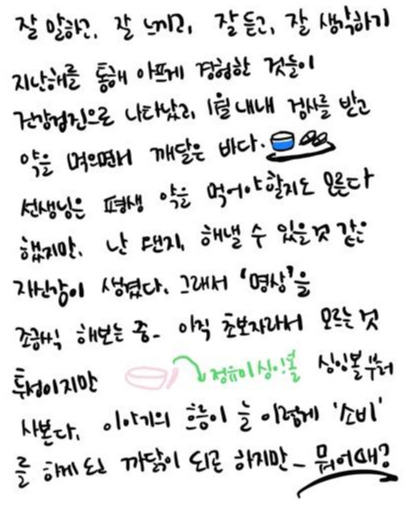 잘 말하고, 잘 느끼고, 잘 듣고, 잘 생각하기
지난해를 통해 아프게 경험한 것들이
건강검진으로 나타났고, 1월 내내 검사를 받고
약을 먹으면서 깨달은 바다.
선생님은 평생 약을 먹어야 할지도 모른다
했지만, 난 왠지, 해낼 수 있을 것 같은
자신감이 생겼다. 그래서 '명상'을
조금씩 해보는 중- 아직 초보자라서 모르는 것
투성이지만 싱잉볼부터
사본다, 이야기의 흐름이 늘 이렇게 '소비'
를 하게 되는 까닭이 되곤 하지만- 뭐어때?